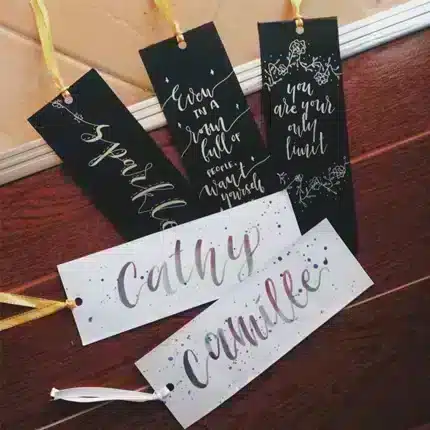 Sparkle
Even
IN A
room
full OF
PEOPLE,
want
yourself
you
are your
only
limit
Cathy
Camille